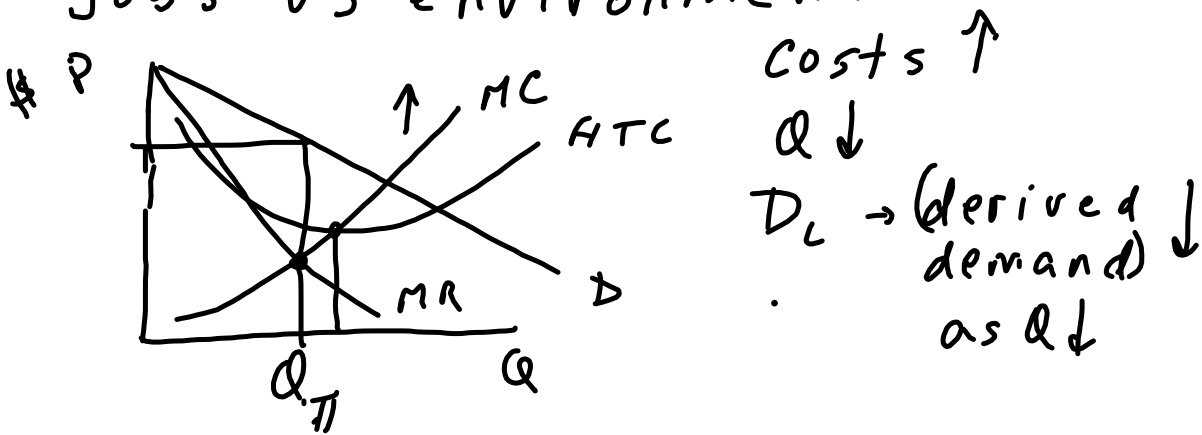 jobs vs environment
$ P
↑ MC
ATC
MR
D
Qπ
Q
Costs ↑
Q ↓
D_L → (derived
demand) ↓
as Q ↓